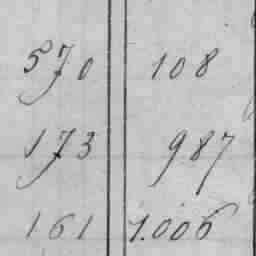 570 108
173 987
161 1.006